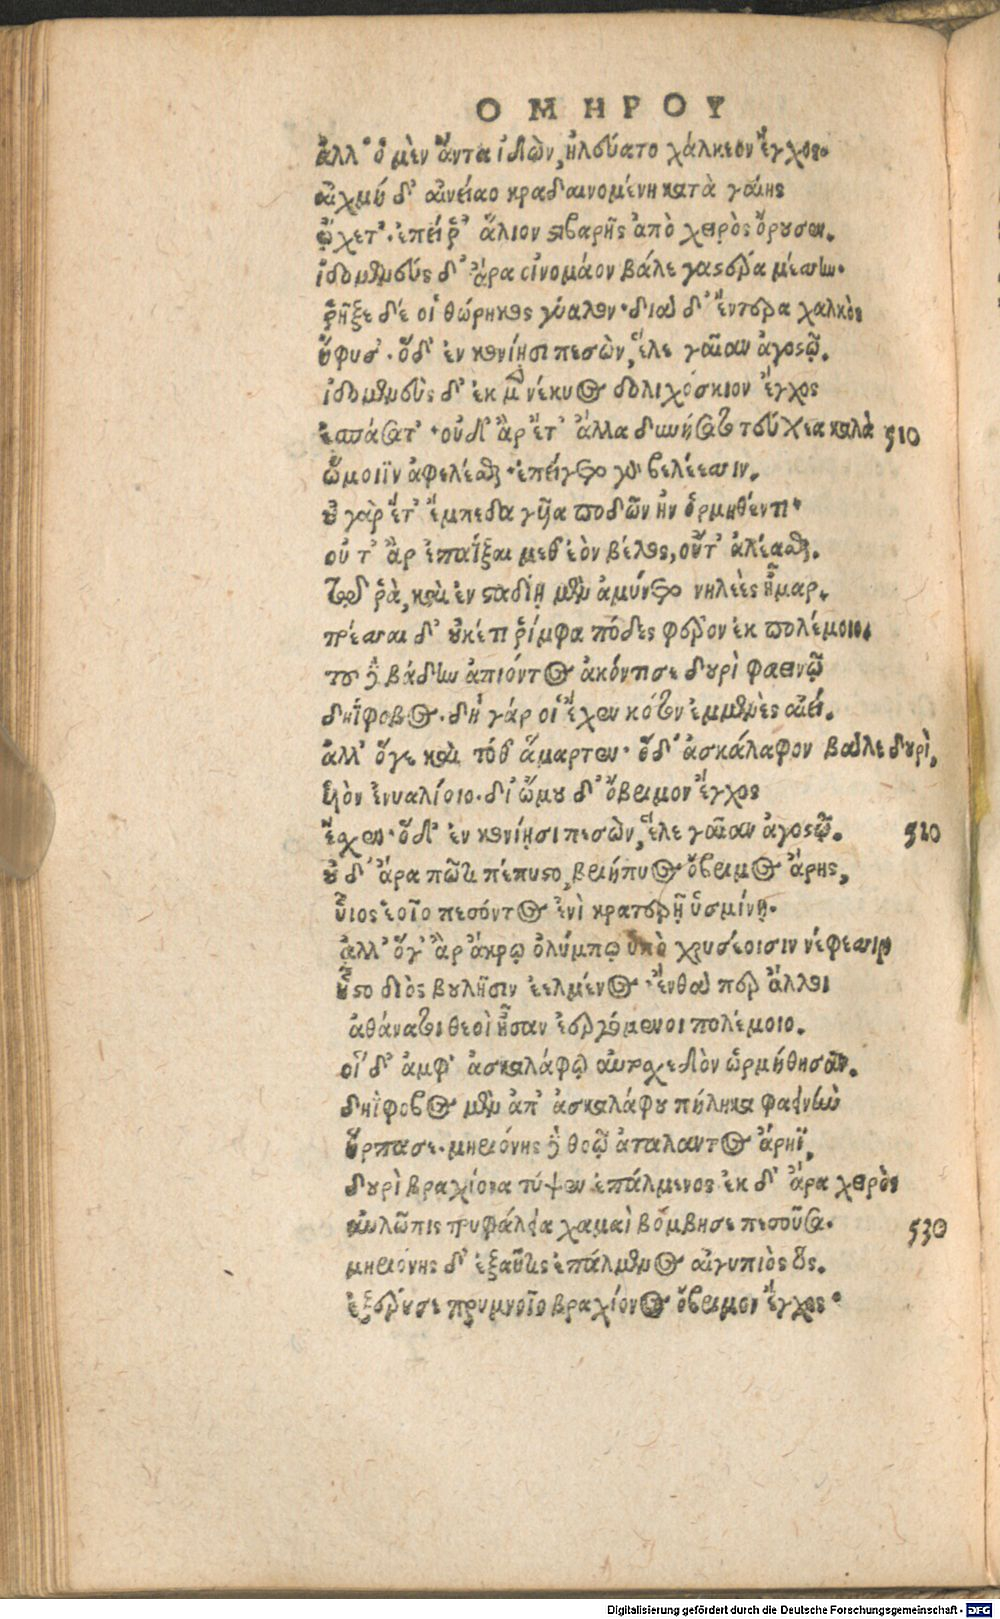 ΟΜΗΡΟΥ
ἀλλ' ὁ μὲν ἄντα ἰδὼν, ἠλεύατο χάλκεον ἔγχος.
αἰχμὴ δ' αἰνείαο κραδαινομένη κατὰ γαίης
ᾤχετ'. ἐπεί ῥ' ἅλιον στιβαρῆς ἀπὸ χειρὸς ὄρουσεν.
ἰδομενεὺς δ' ἄρα οἰνόμαον βάλε γαστέρα μέσσην.
ῥῆξε δέ οἱ θώρηκος γύαλον. διὰ δ' ἔντερα χαλκὸς
ἤφυσ'. ὅδ' ἐν κονίῃσι πεσὼν, ἕλε γαῖαν ἀγοστῷ.
ἰδομενεὺς δ' ἐκ μὲν νέκυος δολιχόσκιον ἔγχος
ἐσπάσατ'. οὐδ' ἂρ ἔτ' ἄλλα δυνήσατο τεύχεα καλὰ 510
ὤμοιϊν ἀφελέσθαι. ἐπείγετο γὰρ βελέεσσιν.
οὐ γὰρ ἔτ' ἔμπεδα γῆα ποδῶν ἦν ὁρμηθέντι.
οὔ τ' ἂρ ἐπαΐξαι μεθ' ἑὸν βέλος, οὔτ' ἀλέασθαι.
τῷ ῥὰ, καὶ ἐν σταδίῃ μὲν ἀμύνετο νηλεὲς ἦμαρ.
τρέσσαι δ' οὐκέτι ῥίμφα πόδες φέρον ἐκ πολέμοιο.
του δὲ βάδην ἀπιόντος ἀκόντισε δουρὶ φαεινῷ
δηΐφοβος. δὴ γάρ οἱ ἔχεν κότον ἐμμενὲς αἰεί.
ἀλλ' ὅγε καὶ τόθ' ἅμαρτεν. ὅδ' ἀσκάλαφον βάλε δουρὶ,
ἑὸν ἐνυαλίοιο. δι' ὤμου δ' ὄβριμον ἔγχος
ἔσχεν. ὅδ' ἐν κονίῃσι πεσὼν, ἕλε γαῖαν ἀγοστῷ. 520
οὐ δ' ἄρα πῶτι πέπυστο, βριήπυος ὄβριμος ἄρης,
υἷος ἑοῖο πεσόντος ἐνὶ κρατερῇ ὑσμίνῃ.
ἀλλ' ὅγ' ἂρ ἄκρῳ ὀλύμπῳ ὑπὸ χρυσέοισιν νέφεσσιν
ἧστο διὸς βουλῇσιν ἐελμένος. ἔνθα περ ἄλλοι
ἀθάνατοι θεοὶ ἦσαν ἐεργόμενοι πολέμοιο.
οἵ δ' ἀμφ' ἀσκαλάφῳ αὐτοσχεδὸν ὡρμήθησαν.
δηΐφοβος μὲν ἀπ' ἀσκαλάφου πήληκα φαεινὴν
ἥρπασε. μηριόνης δὲ θοῷ ἀτάλαντος ἄρηϊ,
δουρὶ βραχίονα τύψεν ἐπάλμενος ἐκ δ' ἄρα χειρὸς
αὐλῶπις τρυφάλεια χαμαὶ βόμβησε πεσοῦσα. 530
μηριόνης δ' ἐξαῦτις ἐπάλμενος αἰγυπιὸς ὣς.
ἐξέρυσε πρυμνοῖο βραχίονος ὄβριμον ἔγχος.
Digitalisierung gefördert durch die Deutsche Forschungsgemeinschaft - DFG